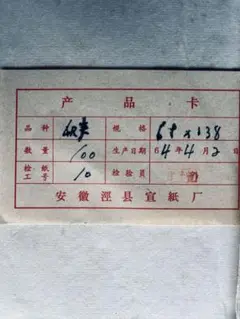 产品卡
品种 规格 68×138
数量 100 生产日期 64年4月2日
检纸工号 10 检验员
安徽泾县宣紙厂